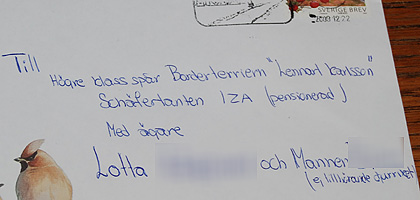 SVERIGE BREV
2009.12.22
Till
Högre klass spår Borderterriern "Lennart Karlsson"
Schäfertanten IZA (pensionerad)
Med ägare
Lotta och Mannen
(ej tillhörande djurriket)